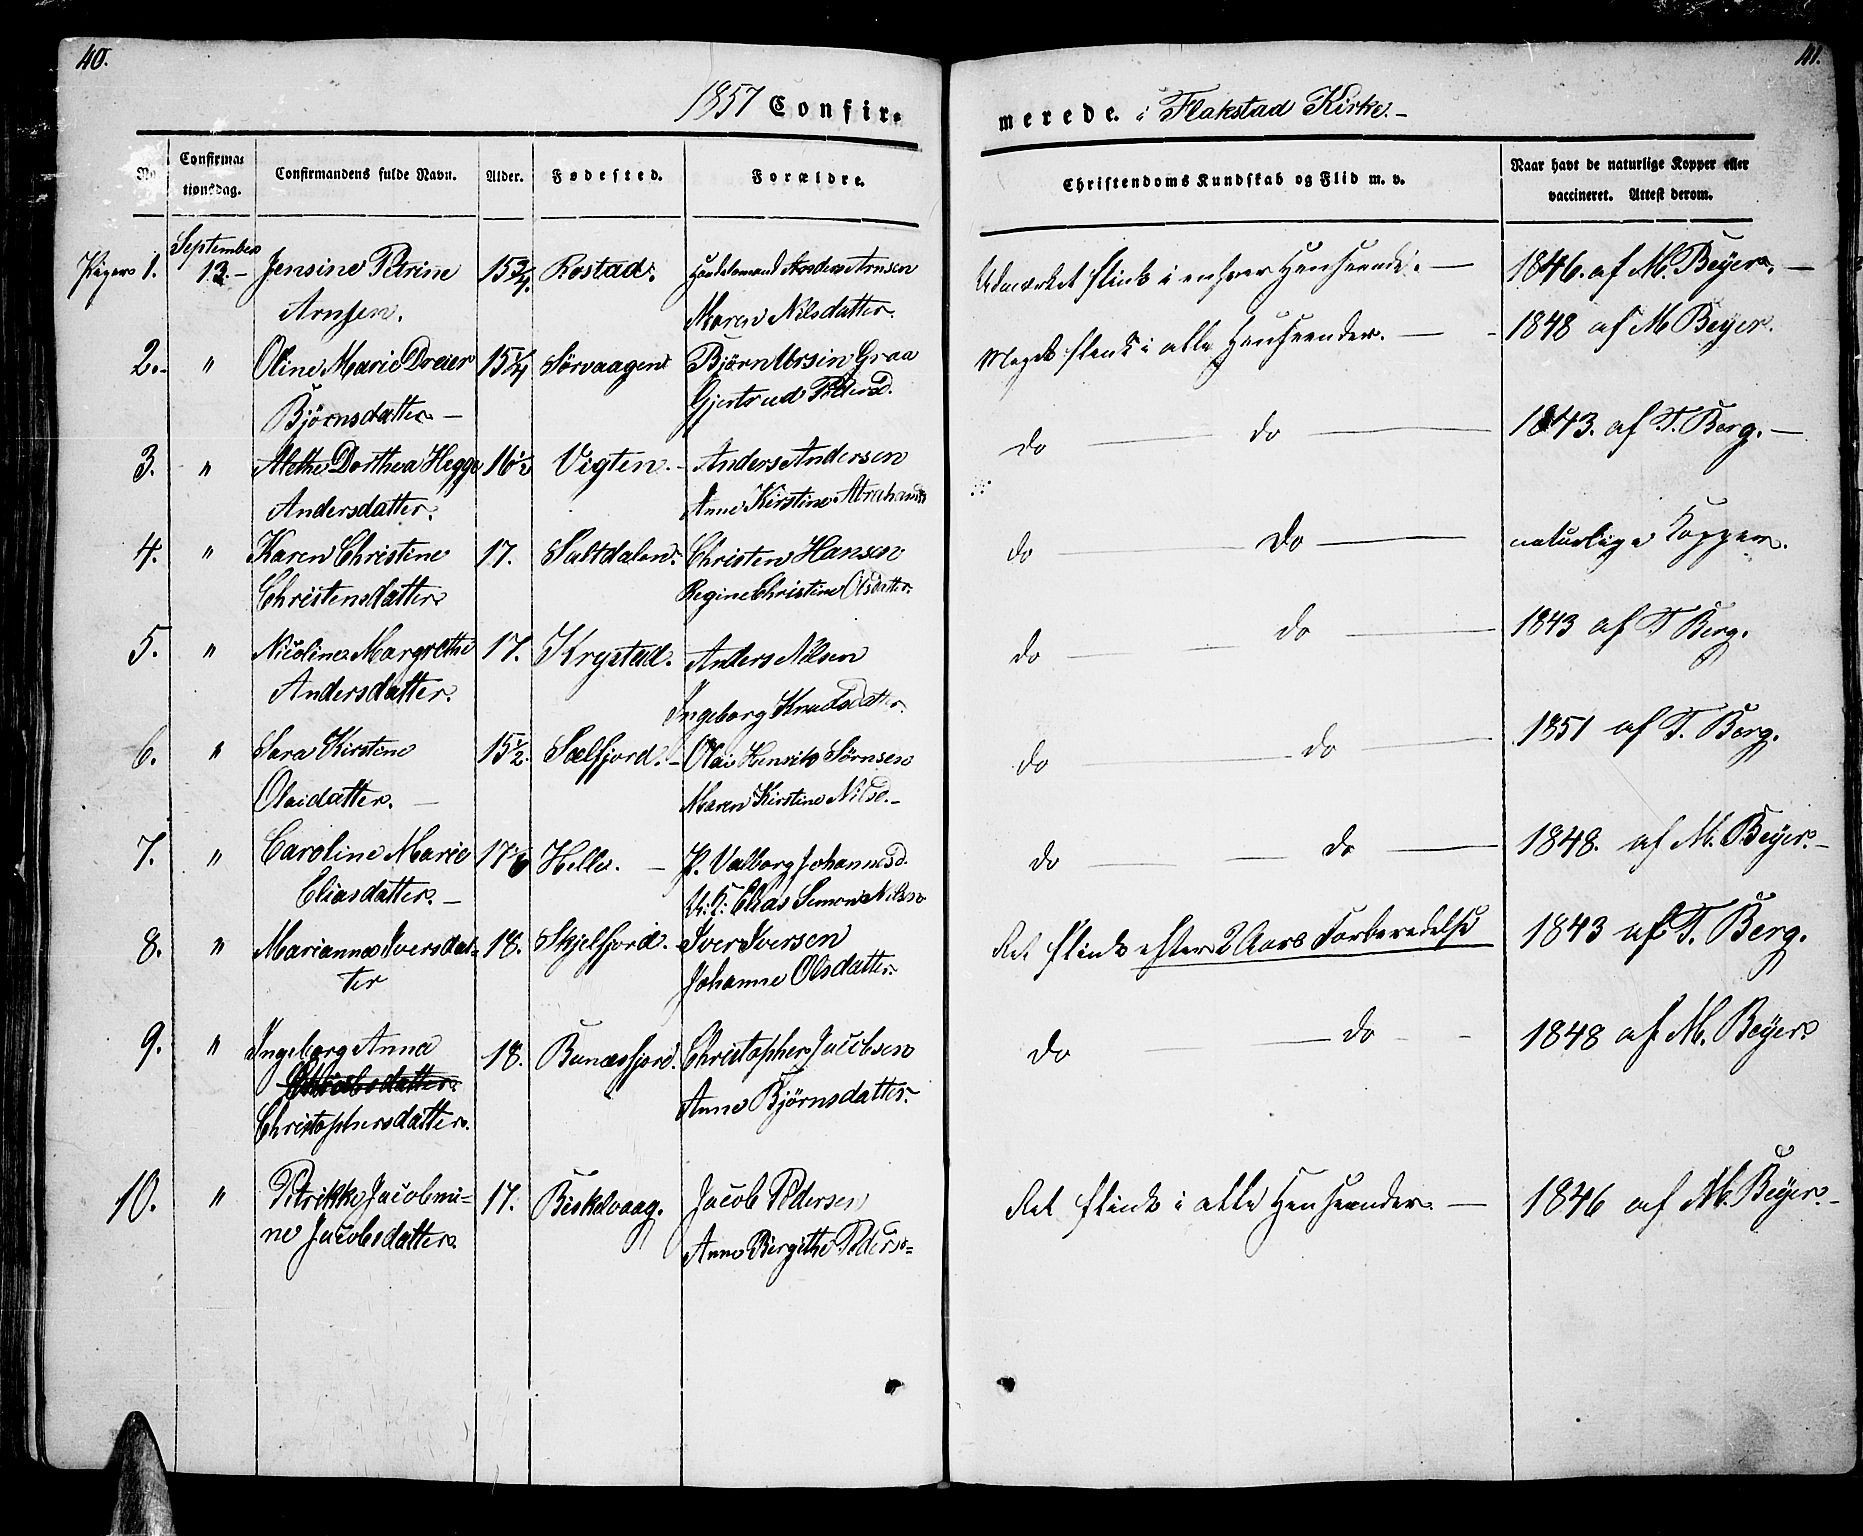 40.
41.
1857 Confir-
merede. i Flakstad Kirke.-
No
Confirma-
tionsdag.
Confirmandens fulde Navn.
Alder.
Fødested.
Forældre.
Christendoms Kundskab og Flid m. v.
Naar havt de naturlige Kopper eller
vaccineret. Attest derom.
Piger 1.
September
13.-
Jensine Petrine
Arnsen.
15 3/4.
Rostad.
Handelsmand Anders Arnsen
Maren Nilsdatter.
Udmærket flink i enhver Henseende. —
1846. af M. Beyer. —
2.
"
Oline Marie Dreier
Bjørnsdatter —
15 1/4
Sørvaagen
Bjørn Ursin Graa
Gjertrud Pedersd.
Meget flink i alle Henseender. —
1848 af M Beyer.
3.
"
Alethe Dorthea Hegge
Andersdatter.
16 1/2
Vigten.-
Anders Andersen
Anne Kirstine Abrahamsd
do — do —
1843. af T. Berg. —
4.
"
Karen Christine
Christensdatter
17.
Saltdalen.
Christen Hansen
Regine Christine Olsdatter.
do — do —
naturlige Kopper.
5.
"
Nicoline Margrethe
Andersdatter.
17.
Krystad.
Anders Nilsen
Ingeborg Knudsdatter.
do — do —
1843 af T Berg.
6.
"
Sara Kirstine
Olaidatter. —
15 1/2.
Sælfjord.-
Olai Henrik Sørnsen
Maren Kirstine Nilsd.-
do — do —
1851 af T. Berg.
7.
"
Caroline Marie
Eliasdatter. —
17
Helle. —
P. Valborg Johannesd.
U.K: Elias Simon Nilsen
do — do —
1848. af M. Beyer.-
8.
"
Marianna Iversdat-
ter
18.
Skjelfjord.-
Iver Iversen
Johanne Olsdatter.
Ret flink efter 2 Aars Forberedelse
1843 af T. Berg.
9.
"
Ingeborg Anna
Christophersdatter.
18.
Bunæsfjord.
Christopher Jacobsen
Anne Bjørnsdatter.
do — do -
1848 af M. Beyer
10.
"
Petrikke Jacobmi-
ne Jacobsdatter.
17.
Beskelvaag.
Jacob Pedersen
Anne Birgithe Pedersd-
Ret flink i alle Henseender. —
1846 af M. Beyer.-